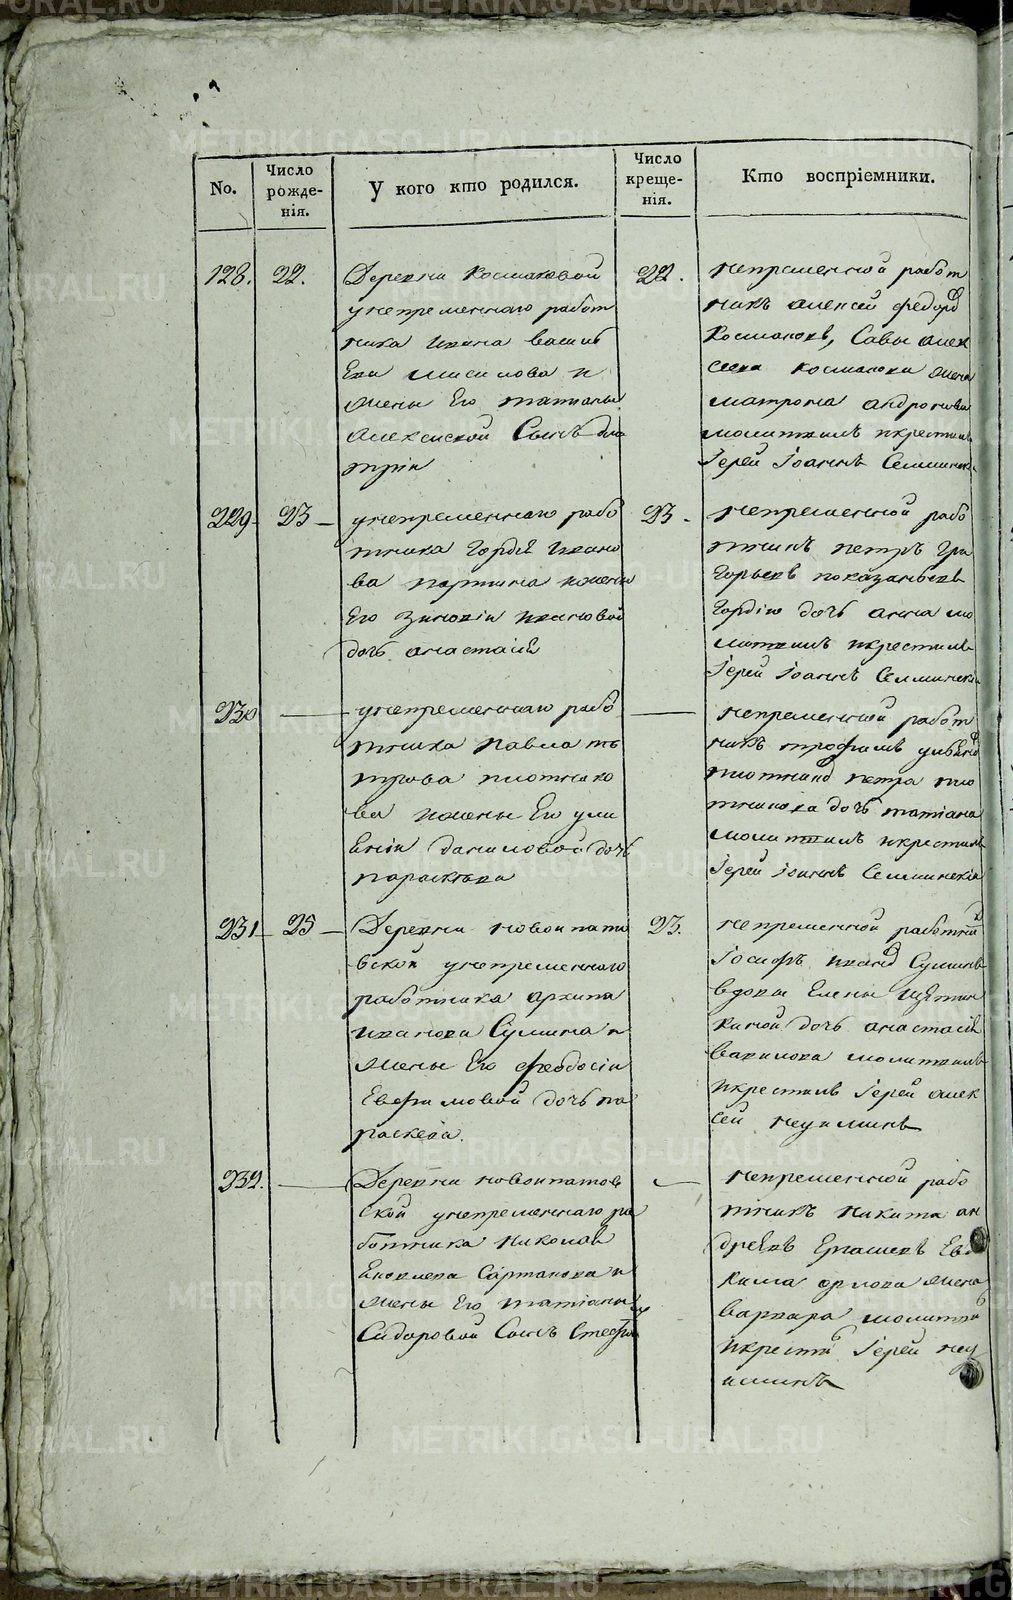 No.
Число рожде-нія.
У кого кто родился.
Число креще-нія.
Кто воспріемники.
128.
22.
Деревни Космаковой
унепременнаго работ
ника Ивана Василь
ева и
жены Его татианы
Алексиевой Сынъ дми
трiи
22.
непременной работ
никъ алексей федоро
Космаковъ, Савы алек
сеева космакова жена
матрона андронова
молитвилъ икрестилъ
Іерей Іоаннъ
229
23
унепременнаго рабо
тника Гордѣя Ивано
ва иженыи
Его Зиновiи ивановой
дочь анастасiя
23
непременной рабо
тникъ петръ Гри
горьевъ показанъвъ
Гордiю дочь анна мо
литвилъ икрестилъ
Іерей Іоаннъ
230
унепременнаго рабо
тника Павла пе
трова плотнико
ва иженыи Его ули
янiи даниловой дочь
параскева
непременной работ
никъ трофимъ ульяно
плотнико петра пло
тникова дочь татiана
молитвилъ икрестилъ
Іерей Іоаннъ
231
25
Деревни новоипати
вской унепременнаго
работника архипа
иванова Сулина и
жены Его феодосiи
Евфимовой дочь па
раскева.
23.
непременной работник
Іосифъ ивано Сулинъ
вдовы Елены
киной дочь анастасiя
вавилова молитвилъ
икрестилъ Іерей алек
сей неуиминъ
232.
Деревни новоипатов
ской унепременнаго ра
ботника Николая
Яковлева Сартакова и
жены Его татiаны
Сидоровой Сынъ Стефан
непременной рабо
тникъ Никита ан
дреевъ Ермаковъ Ев
кима орлова жена
варвара молитви
икрести Іерей неу
иминъ
METRIKI.GASO-URAL.RU